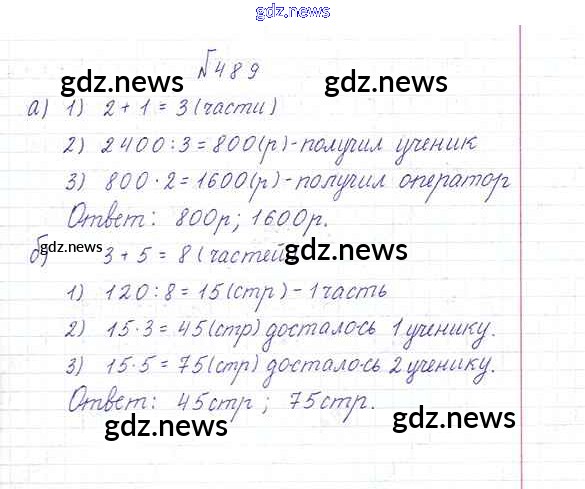 gdz.news
№489
gdz.news gdz.news
а) 1) 2 + 1 = 3 (части)
2) 2400 : 3 = 800(р) - получил ученик
3) 800 · 2 = 1600(р) - получил оператор
Ответ: 800р; 1600р.
gdz.news gdz.news
б) 3 + 5 = 8 (частей
1) 120 : 8 = 15(стр) - 1 часть
2) 15 · 3 = 45(стр) досталось 1 ученику.
3) 15 · 5 = 75(стр) досталось 2 ученику.
Ответ: 45стр ; 75стр.
gdz.news gdz.news